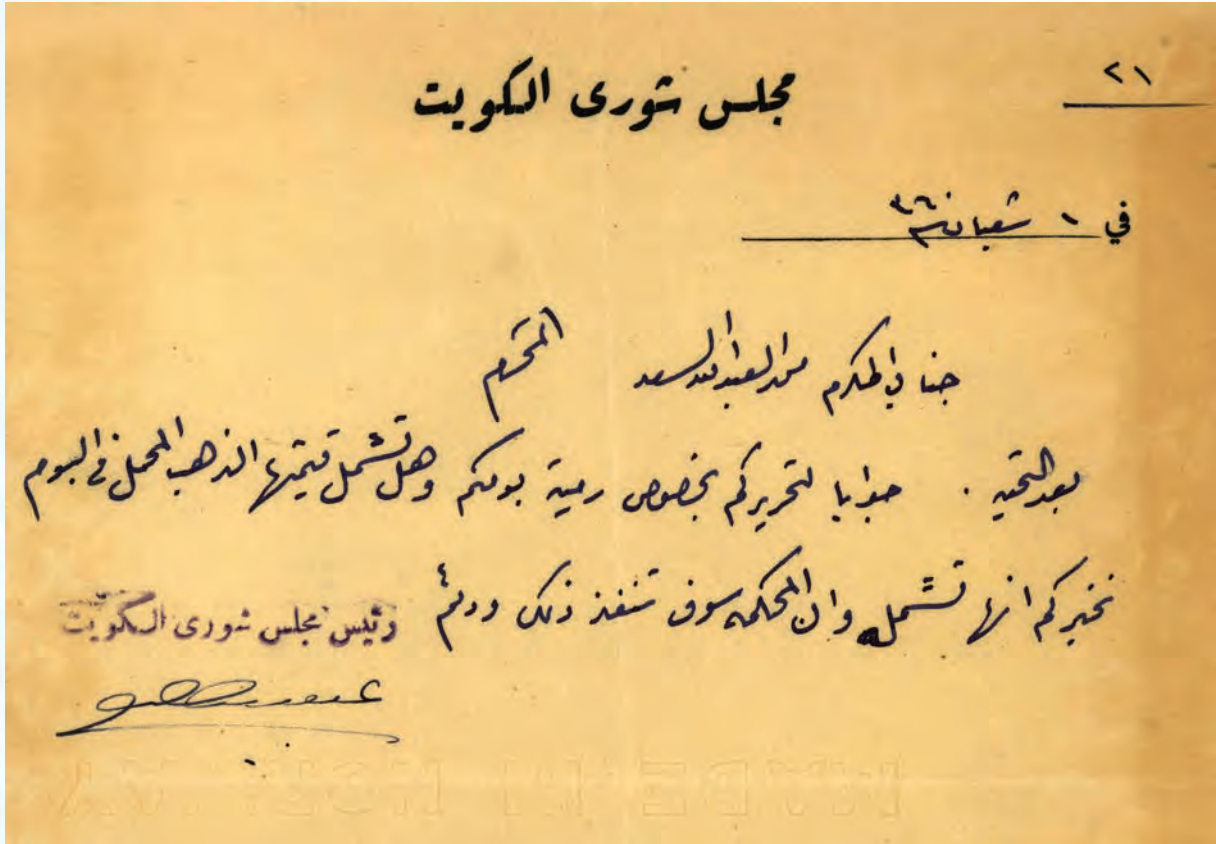 ٢١
مجلس شورى الكويت
في ١ شعبان سنة ٣٦٠
جناب المكرم محمد العبدالله السعد المحترم
بعد التحية . جوابا لتحريركم بخصوص رمية بومكم وهل تشمل قيمتها الذهب المحمل في البوم
نخبركم انها تشمله وان المحكمه سوف تنفذ ذلك ودمتم
رئيس مجلس شورى الكويت